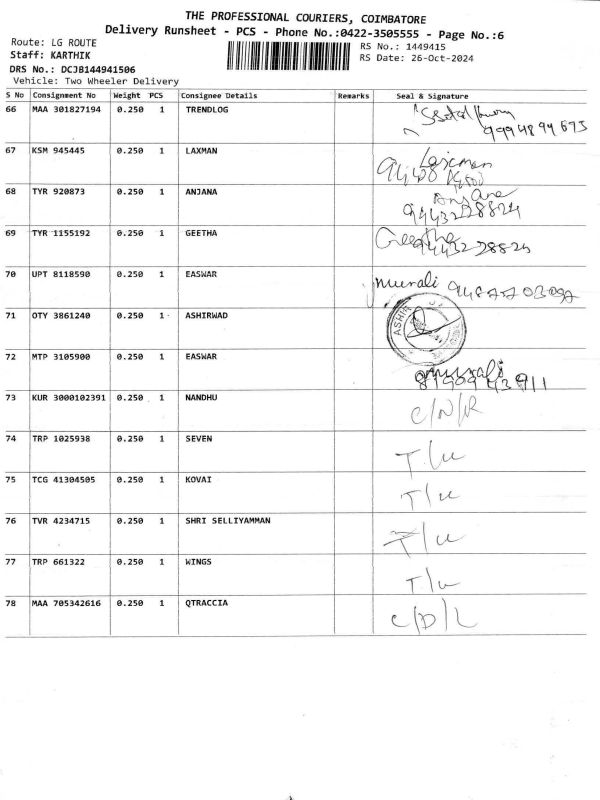 THE PROFESSIONAL COURIERS, COIMBATORE
Delivery Runsheet - PCS - Phone No.:0422-3505555 - Page No.:6
Route: LG ROUTE
RS No.: 1449415
Staff: KARTHIK
RS Date: 26-Oct-2024
DRS No.: DCJB144941506
Vehicle: Two Wheeler Delivery
S No Consignment No Weight PCS Consignee Details Remarks Seal & Signature
66 MAA 301827194 0.250 1 TRENDLOG 9994894673
67 KSM 945445 0.250 1 LAXMAN Laxman
68 TYR 920873 0.250 1 ANJANA Anjana 9443228824
69 TYR 1155192 0.250 1 GEETHA Geetha 9443228824
70 UPT 8118590 0.250 1 EASWAR murali
71 OTY 3861240 0.250 1 ASHIRWAD
72 MTP 3105900 0.250 1 EASWAR murali
73 KUR 3000102391 0.250 1 NANDHU C/N/R
74 TRP 1025938 0.250 1 SEVEN T/u
75 TCG 41304505 0.250 1 KOVAI T/u
76 TVR 4234715 0.250 1 SHRI SELLIYAMMAN T/u
77 TRP 661322 0.250 1 WINGS T/u
78 MAA 705342616 0.250 1 QTRACCIA C/D/L